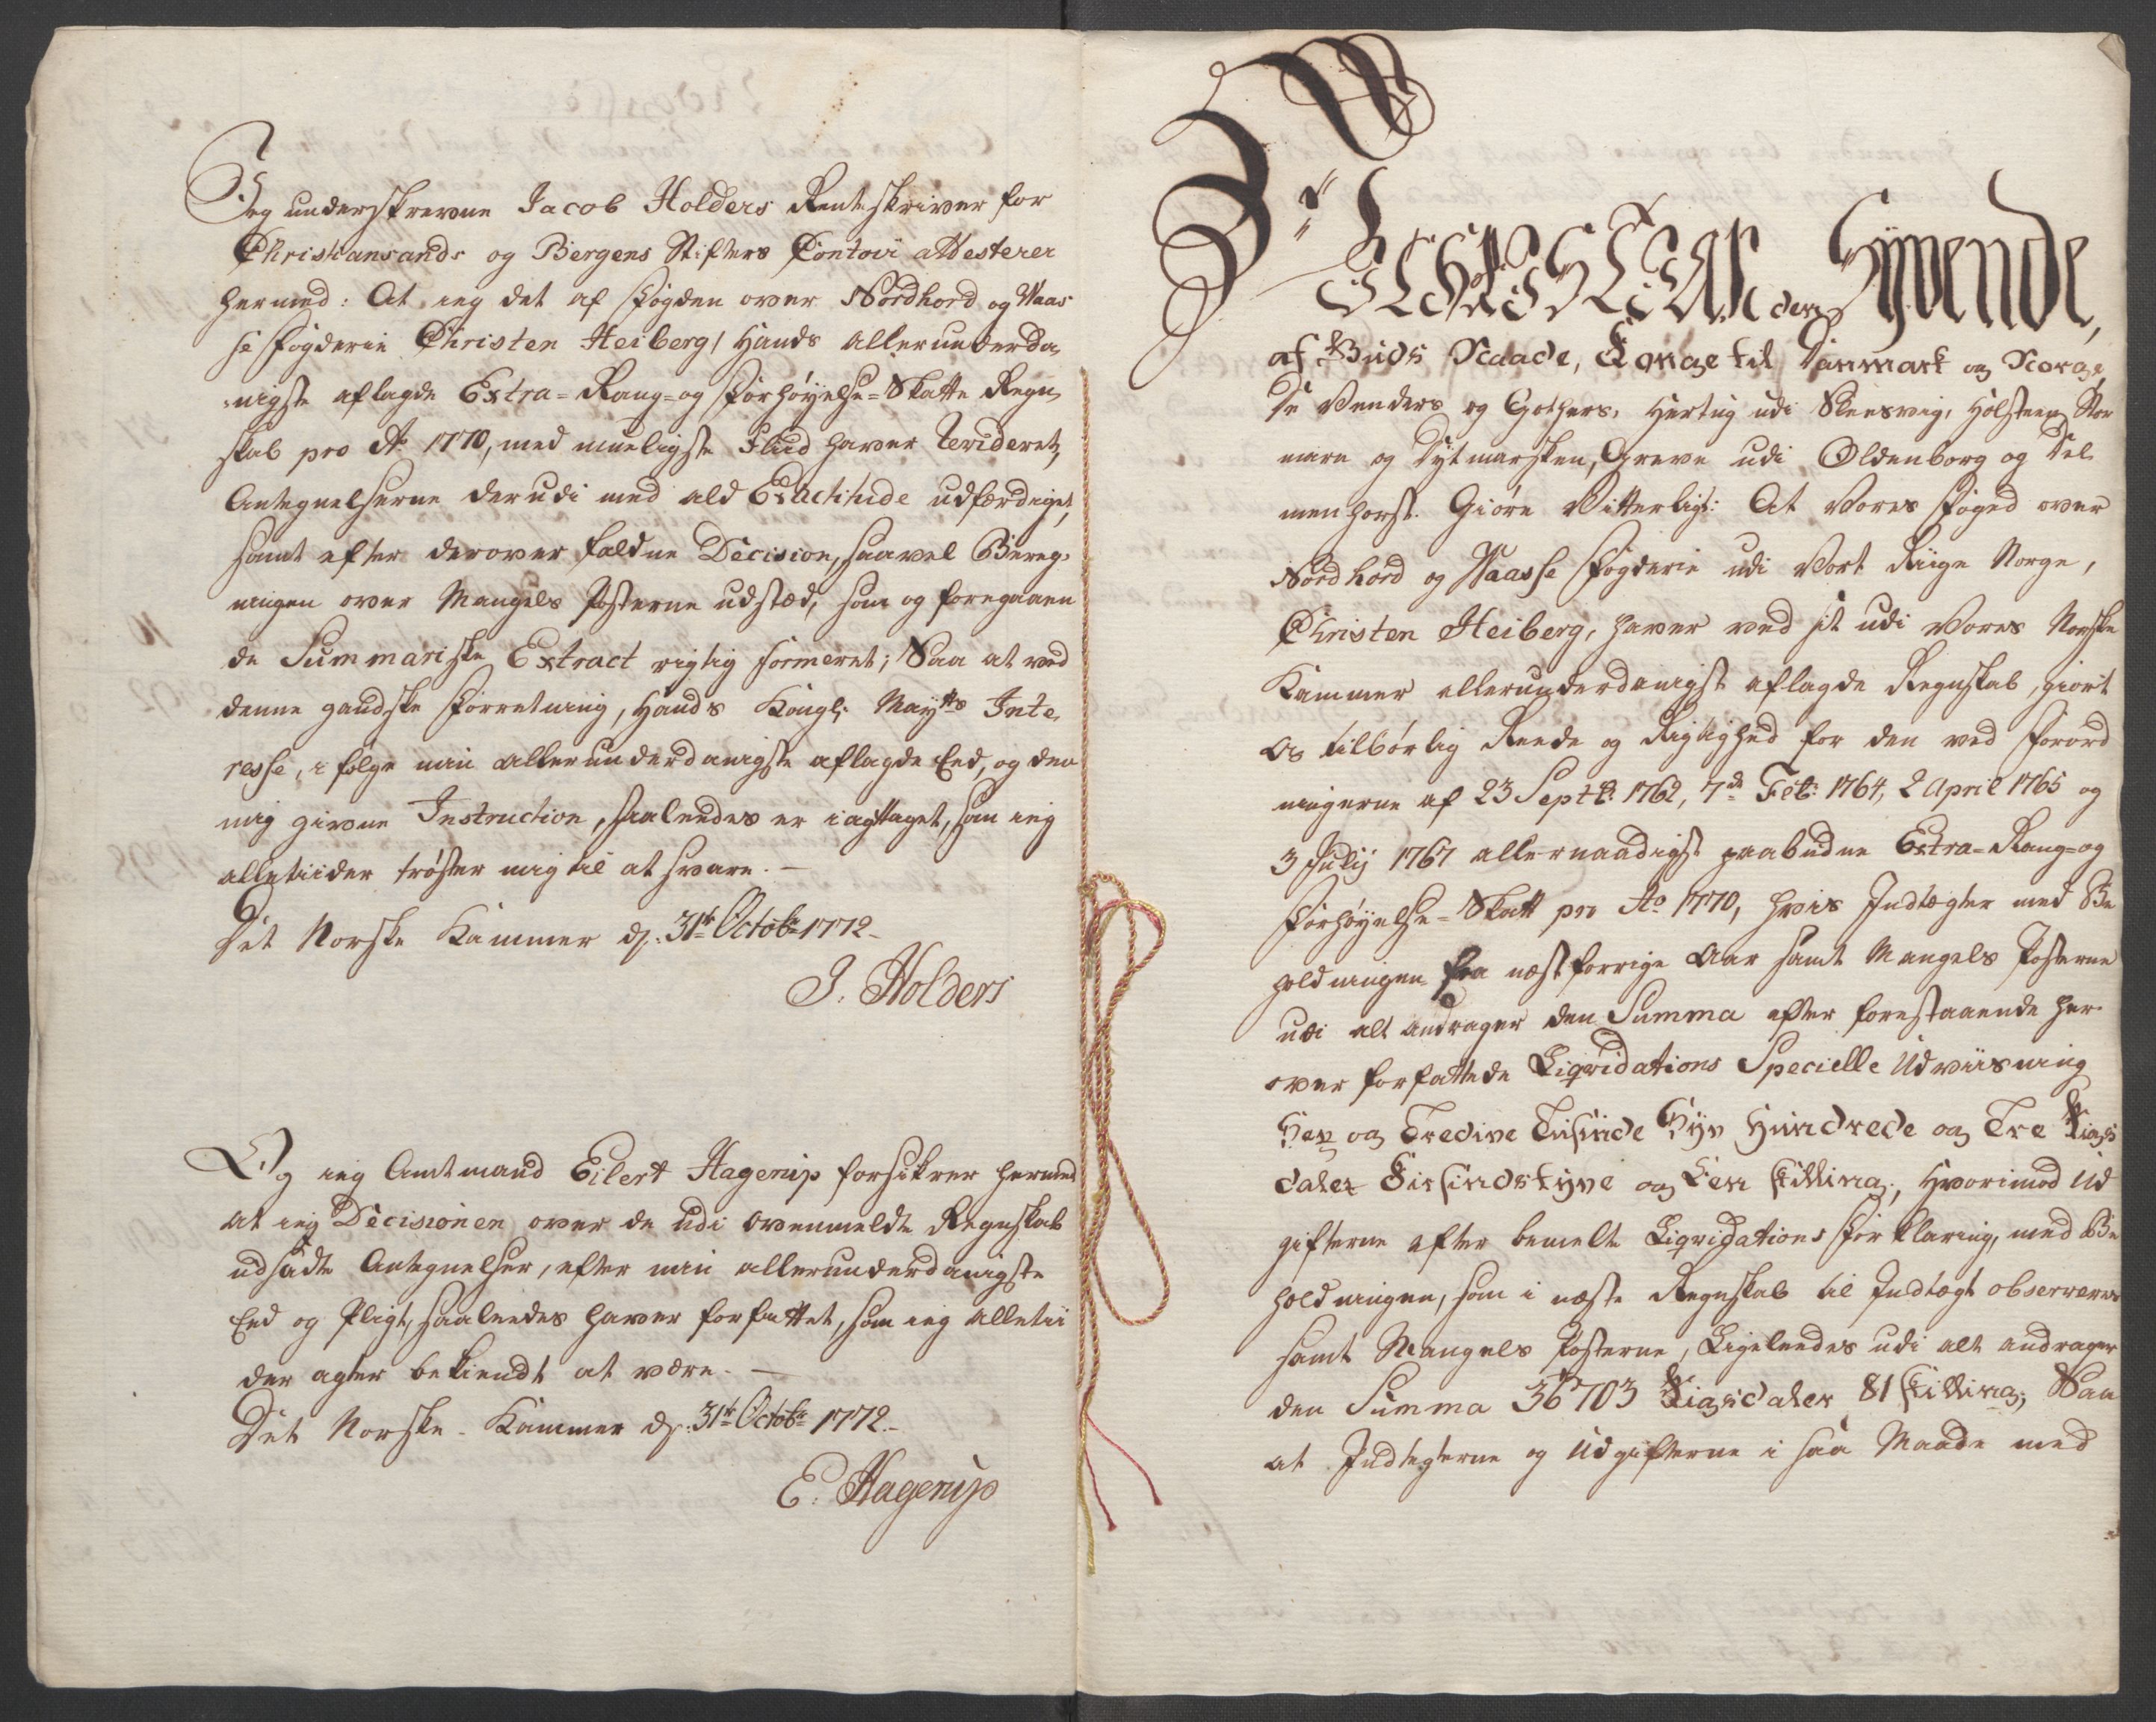 Jeg underskrevne Jacob Holders Renteskriver for
Christiansands og Bergens Stifters Contoir attesterer
hermed: At jeg det af Fogden over Nordhord og Waas
se Fogderie Christen Heiberg, Hands allerunderda
nigste aflagde Extra-Rang- og Forhøyelse-Skatte Regn
skab pro Ao 1770, med mueligste Fliid haver revideret,
Antegnelserne derudi med ald Exactitude udfærdiget,
samt efter derover faldne Decision, saavel Bereg-
ningen over Mangels Posterne udstæd, som og foregaaen
de Summariske Extract rigtig formeret; Saa at ved
denne gandske Forretning, Hands Kongl: Maytts Inte-
resse, i følge min allerunderdanigste aflagde Eed, og den
mig givne Instruction, saaledes er iagttaget, som jeg
alletiider trøster mig til at svare. —
Det Norske Kammer d. 31te Octobr 1772.
J. Holders
Og jeg Amtmand Eilert Hagerup forsikrer hermed
at jeg Decisionen over de udi ovenmeldte Regnskab
udsadte Antegnelser, efter min allerunderdanigste
Eed og Pligt, saaledes haver forfattet, som jeg alletii
der agter bekiendt at være. —
Det Norske Kammer d. 31te Octobr 1772.
E. Hagerup
Wi
CHRISTIAN den Syvende,
af Guds Naade, Konge til Danmark og Norge,
De Venders og Gothers, Hertug udi Slesvig, Holsteen, Stor
marn og Dytmarsken, Greve udi Oldenborg og Del-
menhorst. Giøre Vitterligt: At Vores Foged over
Nordhord og Waasse Fogderie udi Vort Riige Norge,
Christen Heiberg, haver ved sit udi Vores Norske
Kammer allerunderdanigst aflagde Regnskab, giort
Os tilbørlig Reede og Rigtighed for den ved Forord
ningerne af 23 Septb: 1762, 7de Feb: 1764, 2 April 1765 og
3 Julij 1767 allernaadigst paabudne Extra-Rang- og
Forhøyelse-Skatt pro Ao 1770, hvis Indtægter med Be
holdningen fra næstforrige Aar samt Mangels Posterne
udi alt andrager den Summa efter forestaaende her-
over forfattede Liqvidations Specielle Udviisning
Sex og Tredive Tusinde Syv Hundrede og Tre Rigs
daler Fiirsindstyve og Een skilling, Hvorimod Ud
gifterne efter bemelte Liqvidations Forklaring, med Be
holdningen, som i næste Regnskab til Indtægt observeres
samt Mangels Posterne, Ligeleedes udi alt andrager
den Summa 36703 Rigsdaler 81 skilling; Saa
at Indtegterne og Udgifterne i saa Maade med